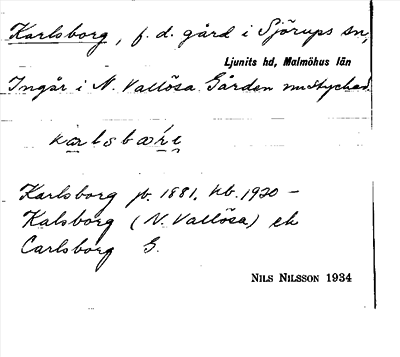 Karlsborg, f. d. gård i Sjörups sn,
Ljunits hd, Malmöhus län
Ingår i N. Vallösa. Gården nu styckad.
Karlsborg jb. 1881, kb. 1920 –
Kalsborg (N. Vallösa) ek
Carlsborg G.
NILS NILSSON 1934